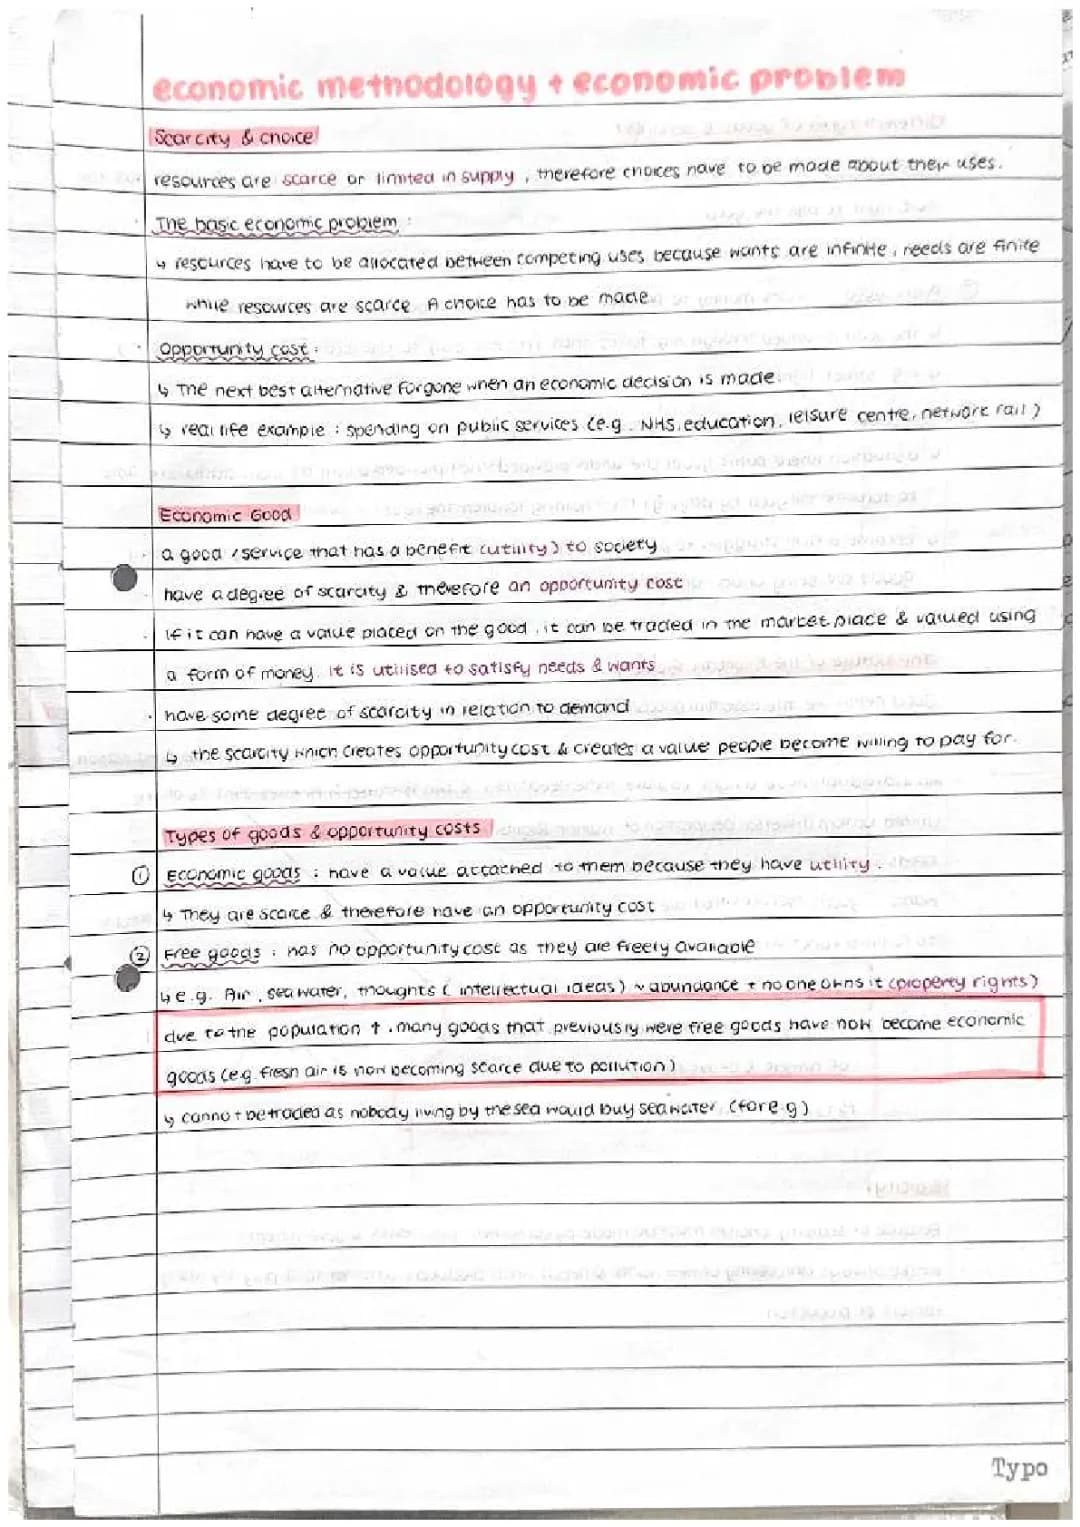 economic methodology + economic problem
Scarcity & choice
resources are scarce or limited in supply, therefore choices have to be made about their uses.
The basic economic problem:
↳ resources have to be allocated between competing uses because wants are infinite, needs are finite
while resources are scarce. A choice has to be made.
Opportunity cost:
↳ The next best alternative forgone when an economic decision is made.
↳ real life example: spending on public services (e.g. NHS, education, leisure centre, network rail)
Economic Good
· a good / service that has a benefit (utility) to society
· have a degree of scarcity & therefore an opportunity cost
· if it can have a value placed on the good, it can be traded in the market place & valued using
a form of money. it is utilised to satisfy needs & wants
· have some degree of scarcity in relation to demand
↳ the scarcity which creates opportunity cost & creates a value people become willing to pay for.
Types of goods & opportunity costs
① Economic goods: have a value attached to them because they have utility.
↳ They are scarce & therefore have an opportunity cost
② Free goods: has no opportunity cost as they are freely available
↳ e.g. Air, sea water, thoughts (intellectual ideas) ~ abundance + no one owns it (property rights)
due to the population ↑, many goods that previously were free goods have now become economic
goods (e.g. fresh air is now becoming scarce due to pollution)
↳ cannot be traded as nobody living by the sea would buy seawater (for e.g)
Typo